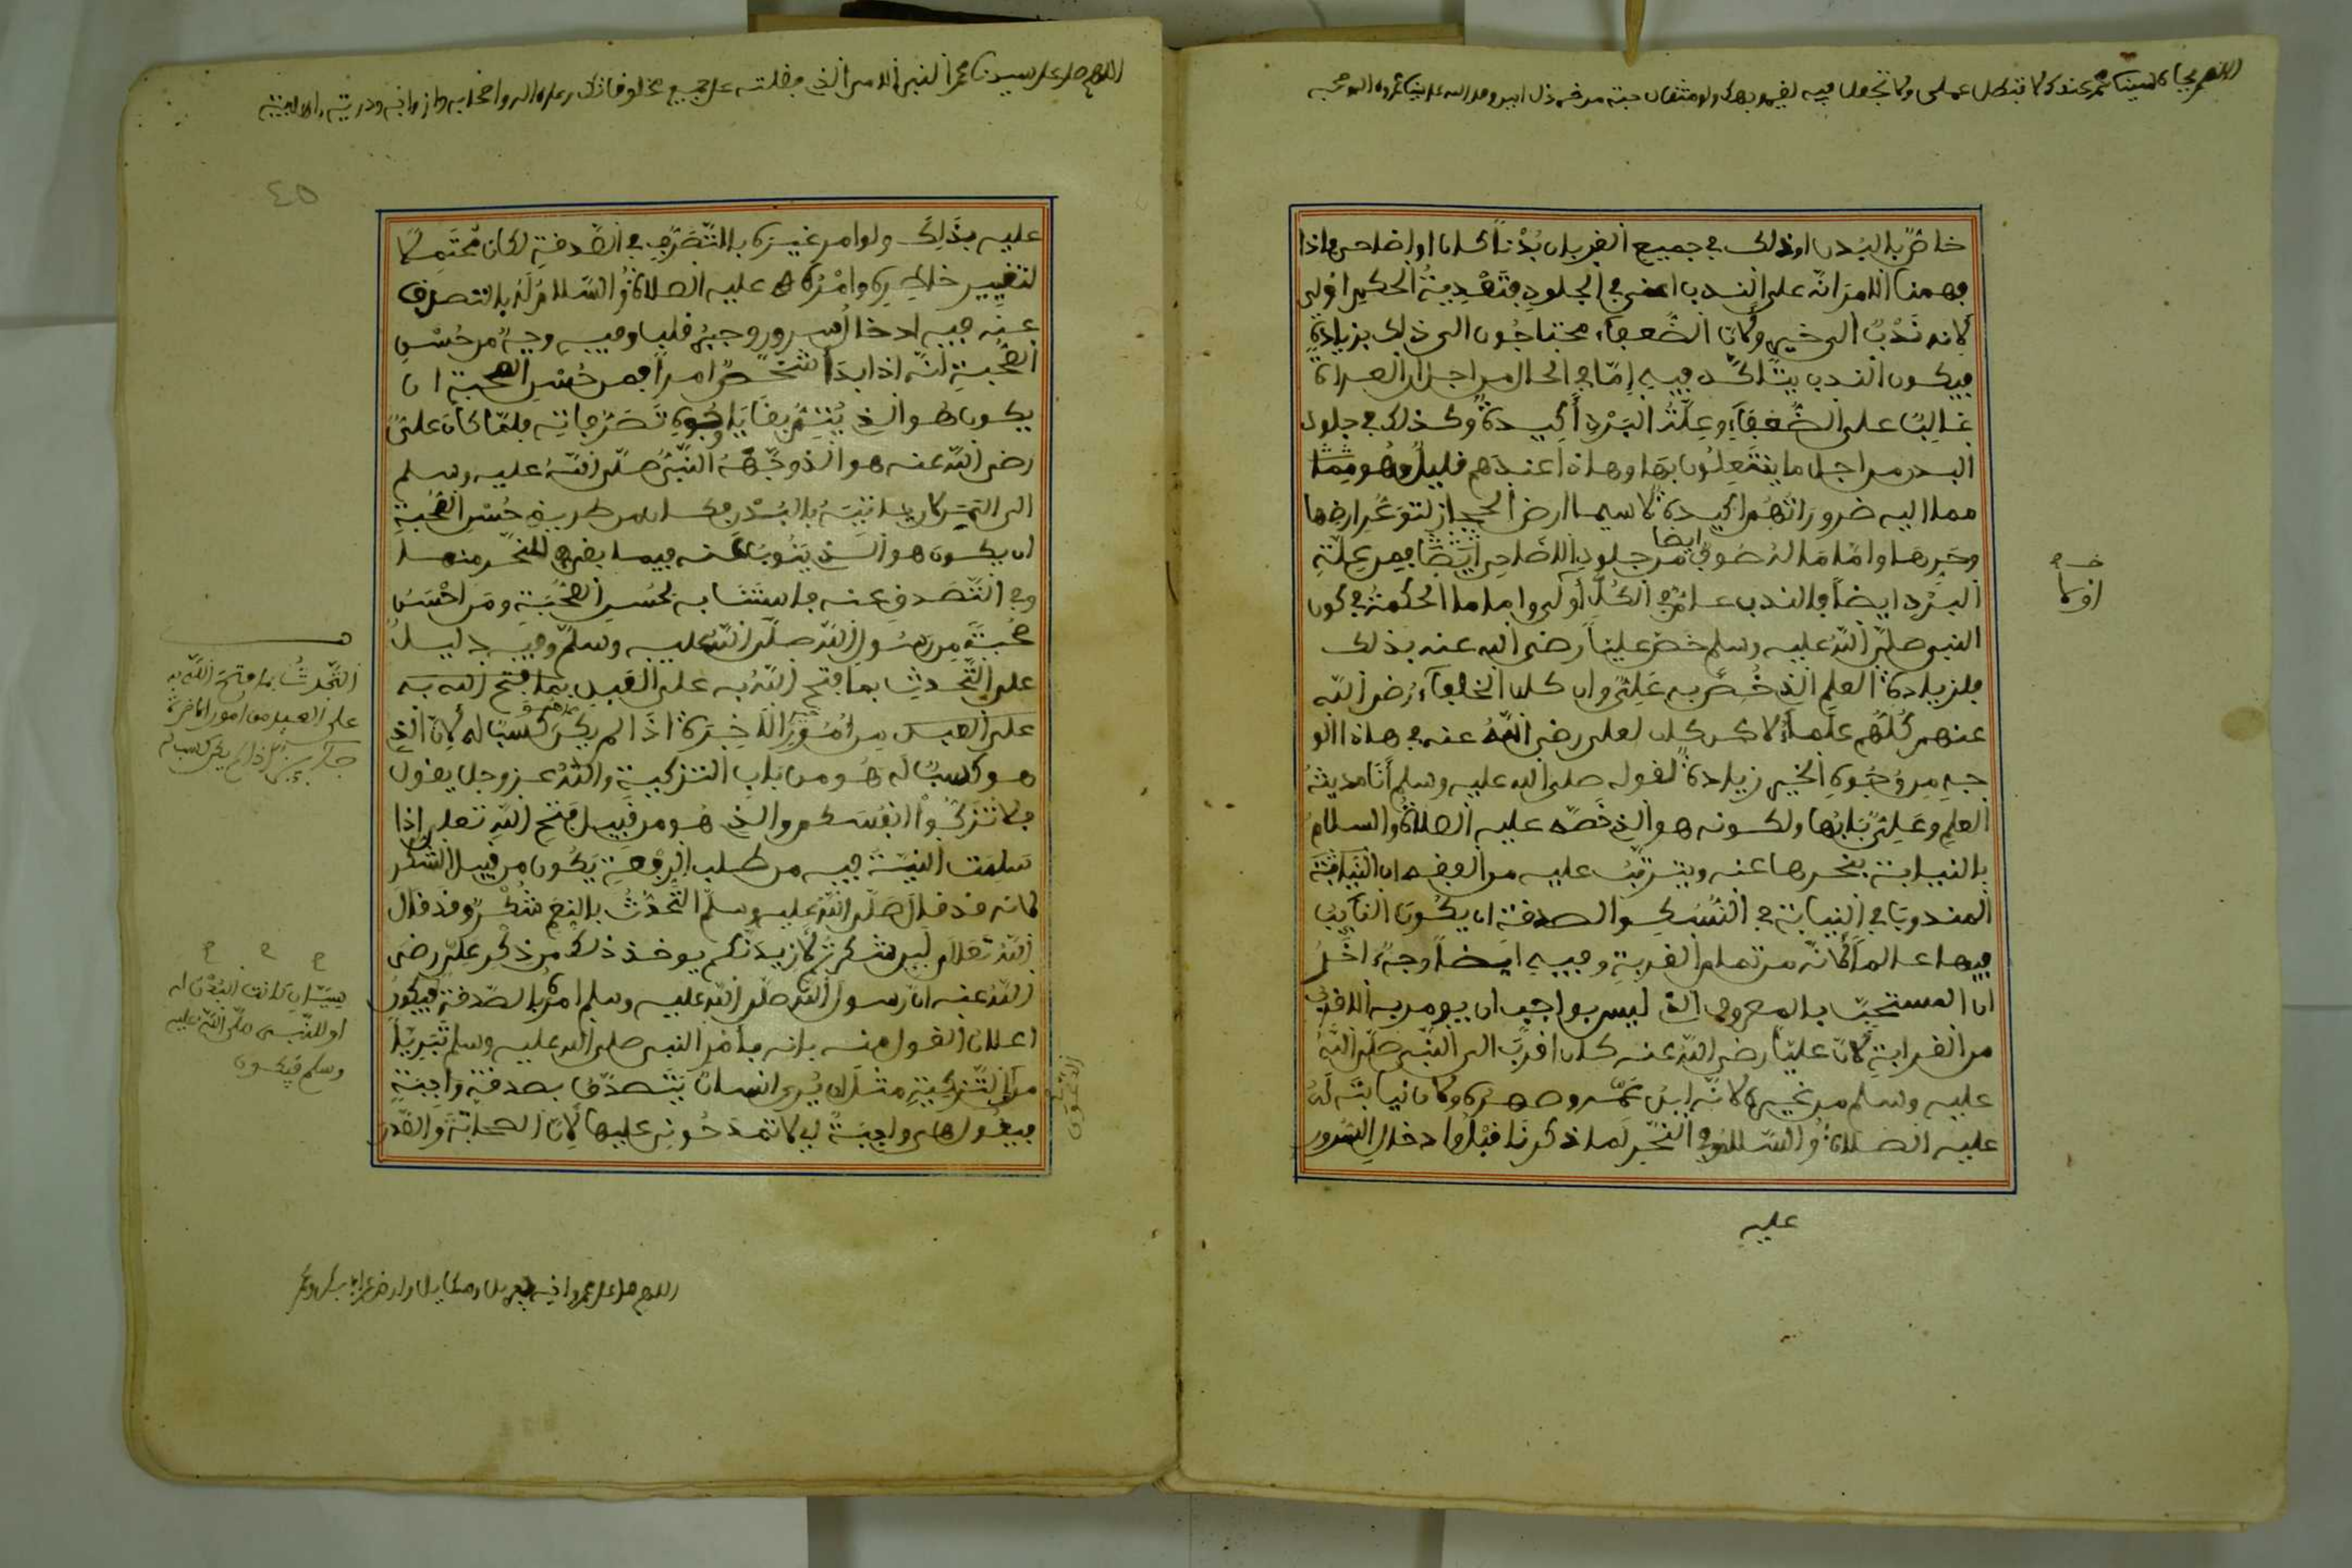 خاصّ بالبُدن او ذلك في جميع القربان بُدْناً كان او اضاحي فاذا
فهمنا الامرَ انّه على الندب اعني في الجلودِ فتَعْدِيةُ الحكمِ اَوْلى
لانه نَدْبٌ الى خيرٍ ولانّ الضُّعفاءَ محتاجُون الى ذلك بزيادةٍ
فيكون الندب يتاكّد فيه اِمّا في الحال من اجل انّ العراة
غالِبًا على الضُّعَفاءِ وعِلّةُ البَرْدِ أكيدةٌ وكذلك في جلود
البدن من اجل ما ينتعِلُون بها وهاذا عندهم قليلٌ وهو مِمّا
مما اليه ضرورَاتُهُم اكيدة لا سيما ارض الحجاز لتوعُّرِ ارضها
وحَرِّها وامّا مَا لهُ صُوفٌ من جلودِ الاضاحي ايضًا فمن عِلّةِ
البَرْدِ ايضاً فالندب عامٌّ في الكُلِّ أولى واما ما الحكمةُ في كون
النبي صلّى اللهُ عليه وسلم خصّ عليّاً رضي الله عنه بذلك
فلزيادة العلمِ الذي خُصَّ به عَلِيٌّ وان كان الخلفآءُ رضي الله
عنهم كُلّهُم علماءُ لاكن كان لعلي رضي اللهُ عنه في هاذا الو
جهِ من وُجُوهِ الخير زيادةٌ لقوله صلى الله عليه وسلم أنَا مدينةُ
العلمِ وعَلِيٌّ بَابُها ولكونه هو الذي خَصّه عليه الصلاةُ والسلامُ
بالنيابة بنحرها عنه ويترتّبُ عليه من الفقه ان النيابةَ
المندوبَ في النيابة في النُّسُكِ والصدقة ان يكُونَ النآيبُ
فيها عالماً لانّه من تمام القربةِ وفيه ايضاً وجهٌ آخَرُ
انّ المستحبّ بالمعروفِ الذي ليس بواجبٍ ان يومر به الاقربُ
من القرابةِ لانّ عليّاً رضي الله عنه كان اقربَ الى النبيّ صلّى اللهُ
عليه وسلم من غيرِه لانّه ابن عَمّه وصهرُه وكان نيابته لَهُ
عليه الصلاةُ والسّلامُ في النّحرِ لما ذكرنا قَبْلُ وادخال السّرور
عليه
خـ
اولًا
عليه بذَلِكَ ولو امر غيرَه بالتّصَرُّفِ في الصّدقةِ لكان مُحْتَمِلًا
لتغييرِ خاطِرِه وامْرُهُ عليه الصلاةُ والسّلامُ لَهُ بالتصرفِ
عنه فيه ادخالُ سرورٍ وجبرُ قلبٍ وفيه وجهٌ من حُسْنِ
الصُّحْبةِ انّه اذا ابدَأ شخصٌ امراً فمن حُسْنِ الصحبة ان
يكون هو الذي يُتِمُّ بقَايا وُجُوهِ تَصَرُّفاتِه فلمّا كانَ عليٌّ
رضي الله عنه هو الذي وجّهَهُ النّبيُّ صلّى اللهُ عليه وسلم
الى اليمن لاتيانه بالبُدْنِ فكان من طريق حُسْنِ الصُّحْبةِ
ان يكون هو الذي يَنُوبُ عَنه فيما بقي من النّحر منها
وفي التّصدقِ عنه
صُحْبةً مِن رسُولِ الله صلّى اللهُ عليه وسلّم وفيه دليلٌ
على التّحدثِ بما فتح اللهُ به على الغير بما فتح الله به
على العبد مِن أُمُورِ الآخِرَة اذَا لم يكُن كَسبًا له لأنّ الذي
هو كسبًا له هُو من بَاب التزكية واللهُ عزوجل يقول
فلا تُزَكُّواْ انفُسَكم والذي هُو من قَبِيل فتحِ اللهِ تعلى اِذا
سلِمَت النيّةُ فيه من طلب الرفعةِ يَكُون من قبيل الشكر
لانه قد قال صلّى اللهُ عليه وسلّم التَّحَدُّثُ بالنِعَمِ شُكْرٌ وقد قَالَ
اللهُ تعلى لَيِن شكرتُم لأزِيدَنّكم يوخذ ذلك من ذِكْرِ عليّ رضي
اللهُ عنه انّ رسول اللهِ صلّى اللهُ عليه وسلم امَرَهُ بالصّدقةِ فيكون
اعلان القول منه بانه بامْرِ النبي صلى الله عليه وسلم تَبَرِيّاً
من التّزكيةِ مثل ان يُرى انسانٌ يَتَصدّقُ بصدقةٍ واجبةٍ
فيقُول هاذه واجبةٌ لي لا تمدحُونِي عليها لأنّ الصحابةَ والصّدرَ
التّحدثُ بما فتحَ اللهُ به
على العبد من اُمُور الآخرة
جائز اذا لم يكن كسبا له
هل كانت البُدْنُ له
او للنّبي صلّى اللهُ عليه
وسلم فيكون
٤٥